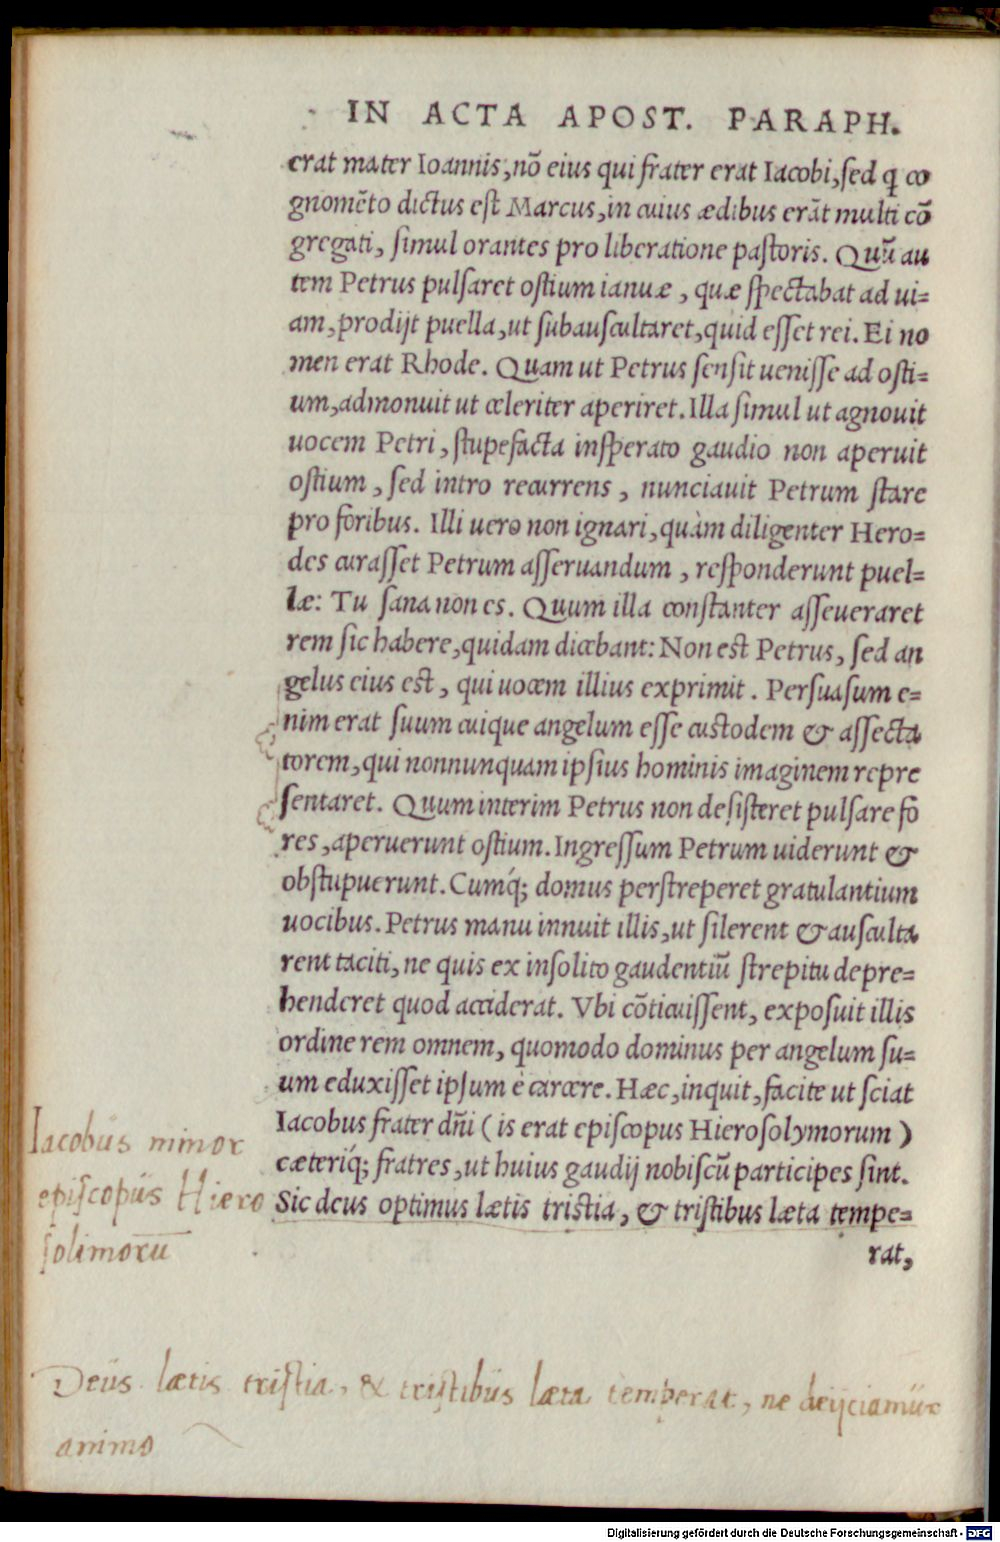 IN ACTA APOST. PARAPH.
erat mater Ioannis, nõ eius qui frater erat Iacobi, sed q co
gnomẽto dictus est Marcus, in cuius ædibus erãt multi cõ
gregati, simul orantes pro liberatione pastoris. Quũ au
tem Petrus pulsaret ostium ianuæ, quæ spectabat ad ui=
am, prodijt puella, ut subauscultaret, quid esset rei. Ei no
men erat Rhode. Quam ut Petrus sensit uenisse ad osti=
um, admonuit ut celeriter aperiret. Illa simul ut agnouit
uocem Petri, stupefacta insperato gaudio non aperuit
ostium, sed intro recurrens, nunciauit Petrum stare
pro foribus. Illi uero non ignari, quàm diligenter Hero=
des curasset Petrum asseruandum, responderunt puel=
læ: Tu sana non es. Quum illa constanter asseueraret
rem sic habere, quidam dicebant: Non est Petrus, sed an
gelus eius est, qui uocem illius exprimit. Persuasum e=
nim erat suum cuique angelum esse custodem & assecta
torem, qui nonnunquam ipsius hominis imaginem repre
sentaret. Quum interim Petrus non desisteret pulsare fo
res, aperuerunt ostium. Ingressum Petrum uiderunt &
obstupuerunt. Cumq́; domus perstreperet gratulantium
uocibus. Petrus manu innuit illis, ut silerent & ausculta
rent taciti, ne quis ex insolito gaudentiũ strepitu depre=
henderet quod acciderat. Vbi cõticuissent, exposuit illis
ordine rem omnem, quomodo dominus per angelum su=
um eduxisset ipsum è carcere. Hæc, inquit, facite ut sciat
Iacobus frater dñi (is erat episcopus Hierosolymorum)
cæteriq́; fratres, ut huius gaudij nobiscũ participes sint.
Sic deus optimus lætis tristia, & tristibus læta tempe=
rat,
Iacobus minor
episcopus Hiero
solimorũ
Deus lætis tristia, & tristibus læta temperat, ne deijciamur
animo
Digitalisierung gefördert durch die Deutsche Forschungsgemeinschaft - DFG